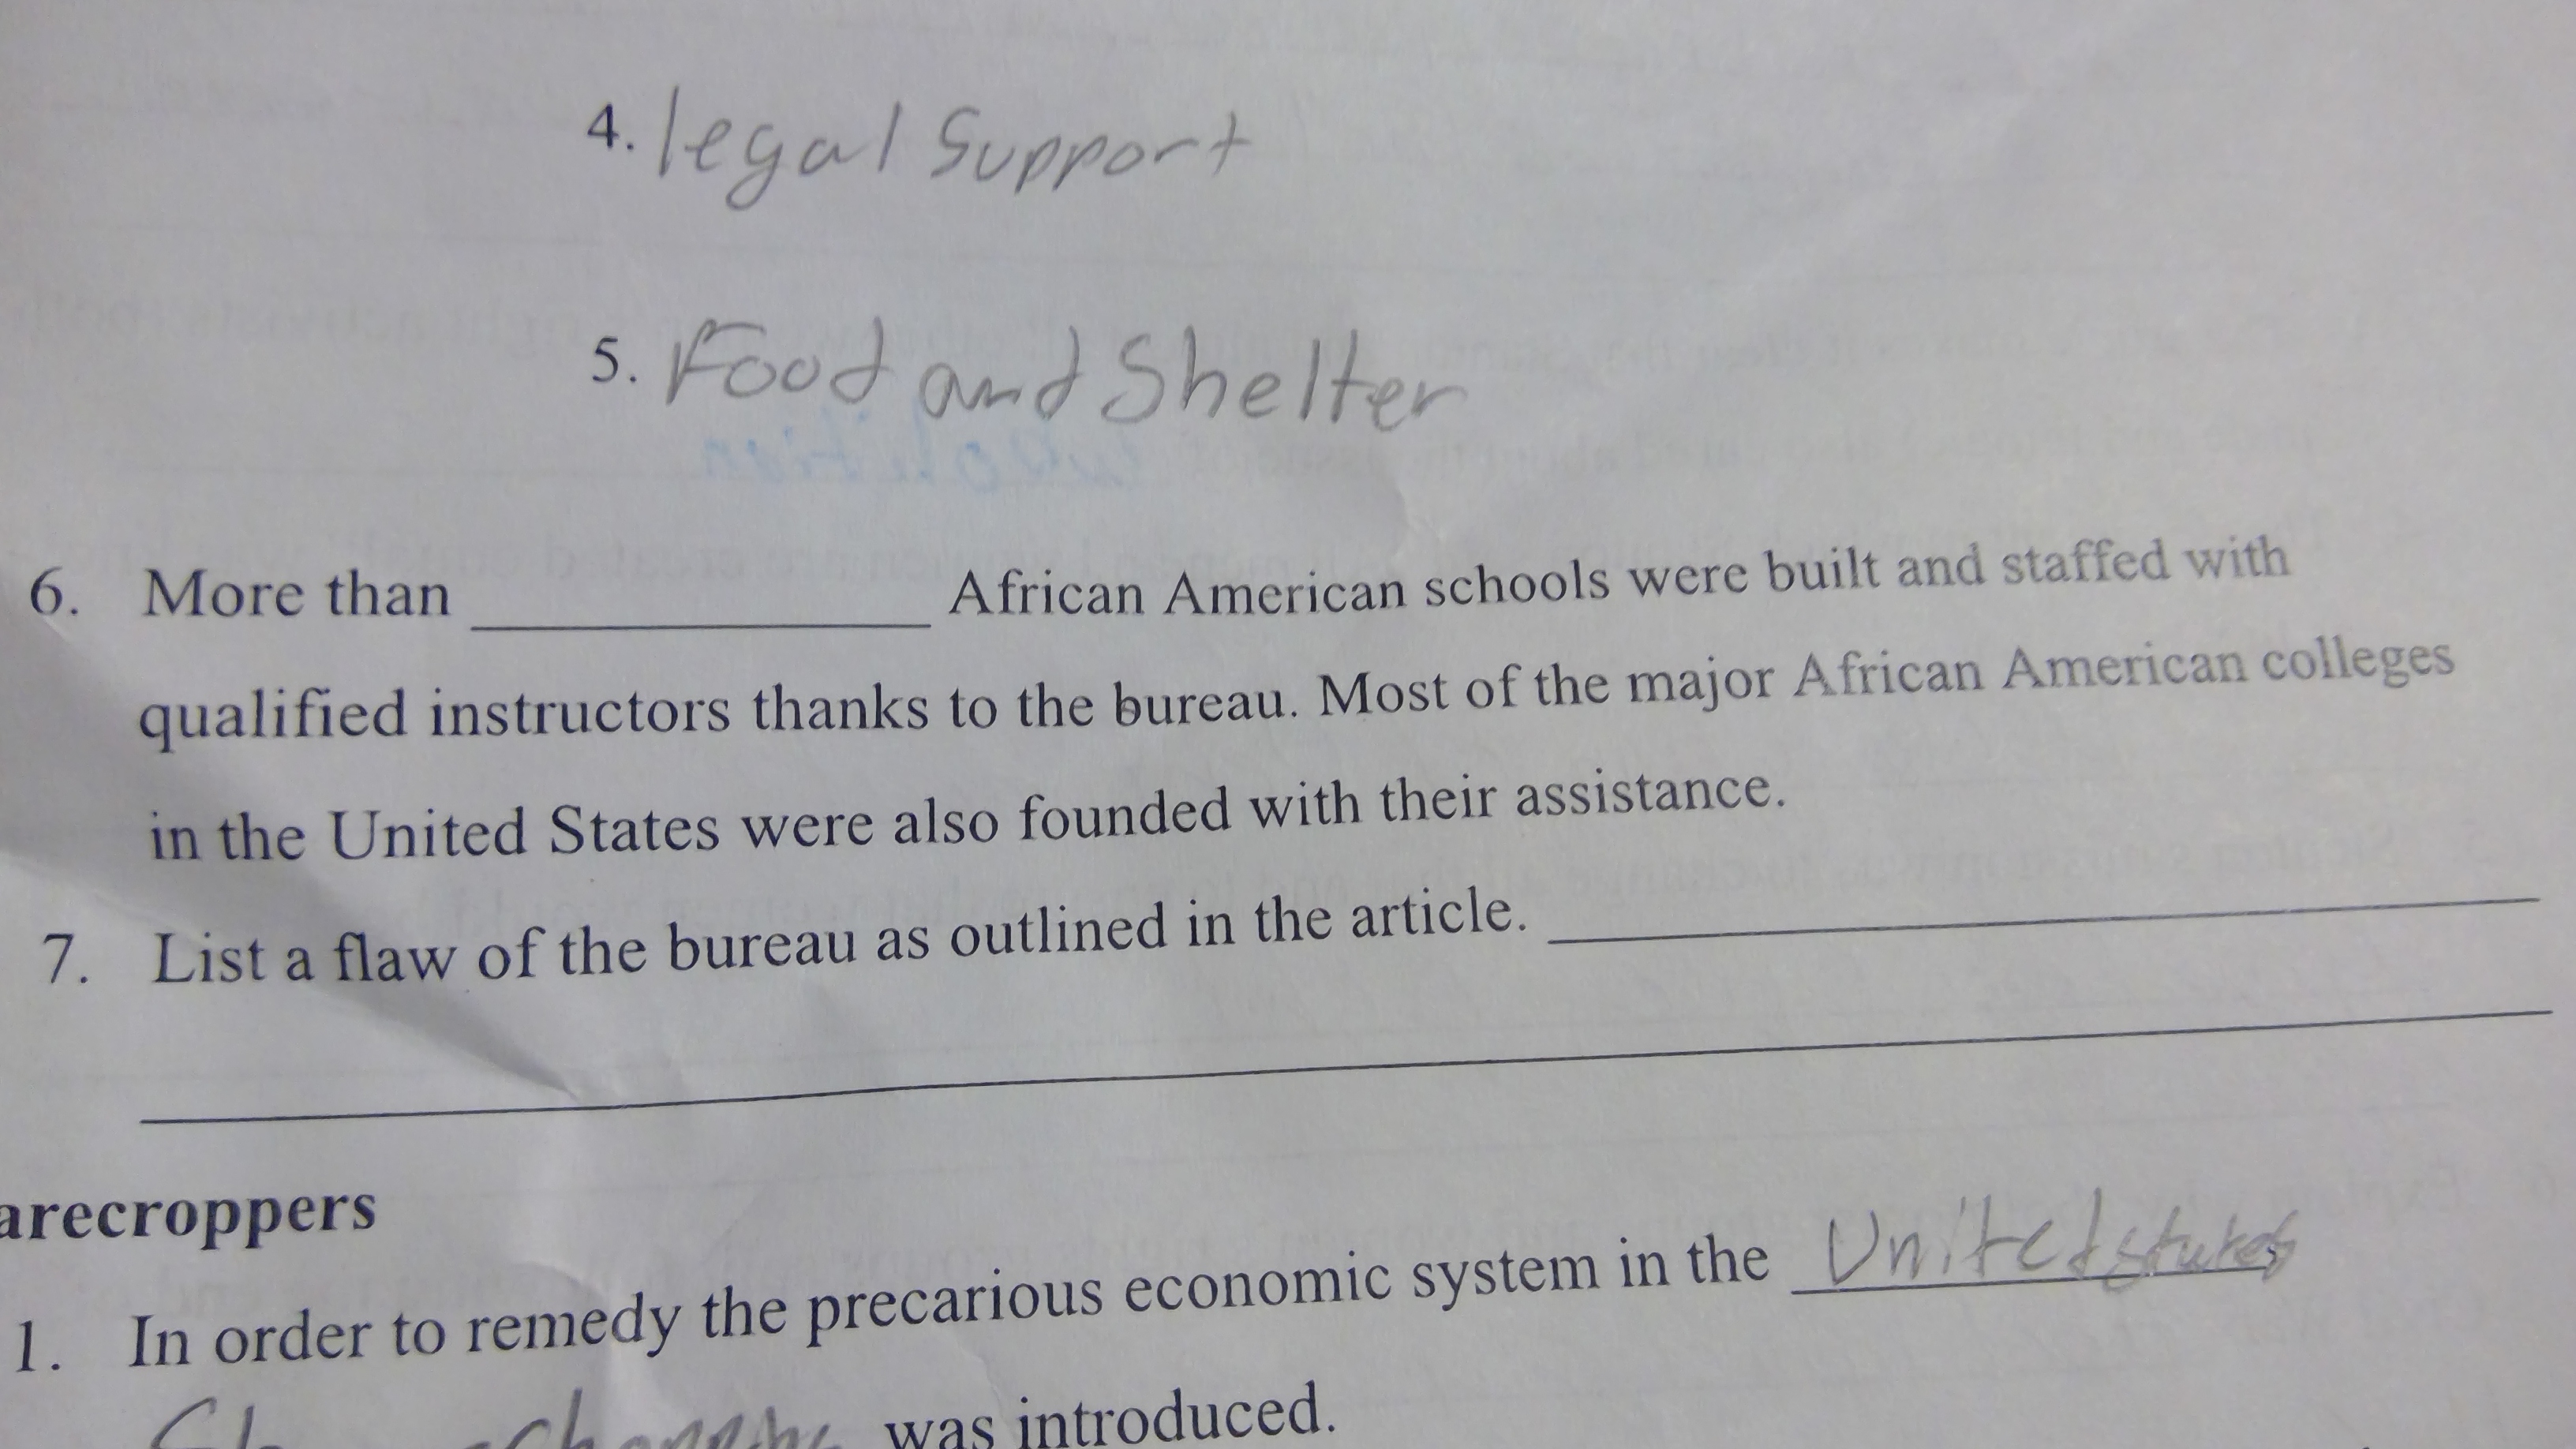 4. legal Support
5. Food and Shelter
6. More than ____________ African American schools were built and staffed with
qualified instructors thanks to the bureau. Most of the major African American colleges
in the United States were also founded with their assistance.
7. List a flaw of the bureau as outlined in the article. ____________
arecroppers
1. In order to remedy the precarious economic system in the United states
was introduced.